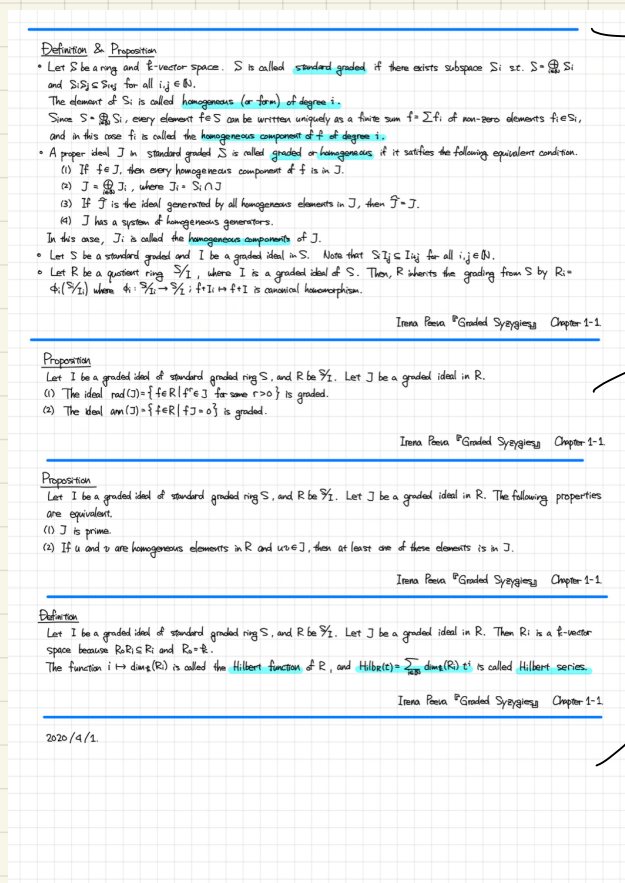 Definition & Proposition
• Let S be a ring and k-vector space. S is called standard graded if there exists subspace Si s.t. S = ⊕_{i∈N} Si
and SiSj ⊆ Si+j for all i,j ∈ ℕ.
The element of Si is called homogeneous (or form) of degree i.
Since S = ⊕_{i∈N} Si, every element f∈S can be written uniquely as a finite sum f = Σfi of non-zero elements fi∈Si,
and in this case fi is called the homogeneous component of f of degree i.
• A proper ideal J in standard graded S is called graded or homogeneous if it satifies the following equivalent condition.
(1) If f∈J, then every homogeneous component of f is in J.
(2) J = ⊕_{i∈N} Ji, where Ji = Si ∩ J
(3) If J̃ is the ideal generated by all homogeneous elements in J, then J̃ = J.
(4) J has a system of homogeneous generators.
In this case, Ji is called the homogeneous components of J.
• Let S be a standard graded and I be a graded ideal in S. Note that SiIj ⊆ Ii+j for all i,j ∈ ℕ.
• Let R be a quotient ring S/I, where I is a graded ideal of S. Then, R inherits the grading from S by Ri =
φi(S/Ii) where φi : S/Ii → S/I ; f+Ii ↦ f+I is canonical homomorphism.
Irena Peeva 『Graded Syzygies』 Chapter 1-1.
Proposition
Let I be a graded ideal of standard graded ring S, and R be S/I. Let J be a graded ideal in R.
(1) The ideal rad(J) = { f∈R | f^r ∈ J for some r>0 } is graded.
(2) The ideal ann(J) = { f∈R | fJ = 0 } is graded.
Irena Peeva 『Graded Syzygies』 Chapter 1-1.
Proposition
Let I be a graded ideal of standard graded ring S, and R be S/I. Let J be a graded ideal in R. The following properties
are equivalent.
(1) J is prime.
(2) If u and v are homogeneous elements in R and uv∈J, then at least one of these elements is in J.
Irena Peeva 『Graded Syzygies』 Chapter 1-1.
Definition
Let I be a graded ideal of standard graded ring S, and R be S/I. Let J be a graded ideal in R. Then Ri is a k-vector
space because R0Ri ⊆ Ri and R0 = k.
The function i ↦ dimk(Ri) is called the Hilbert function of R, and HilbR(t) = Σ_{i∈N} dimk(Ri) t^i is called Hilbert series.
Irena Peeva 『Graded Syzygies』 Chapter 1-1.
2020/4/1.